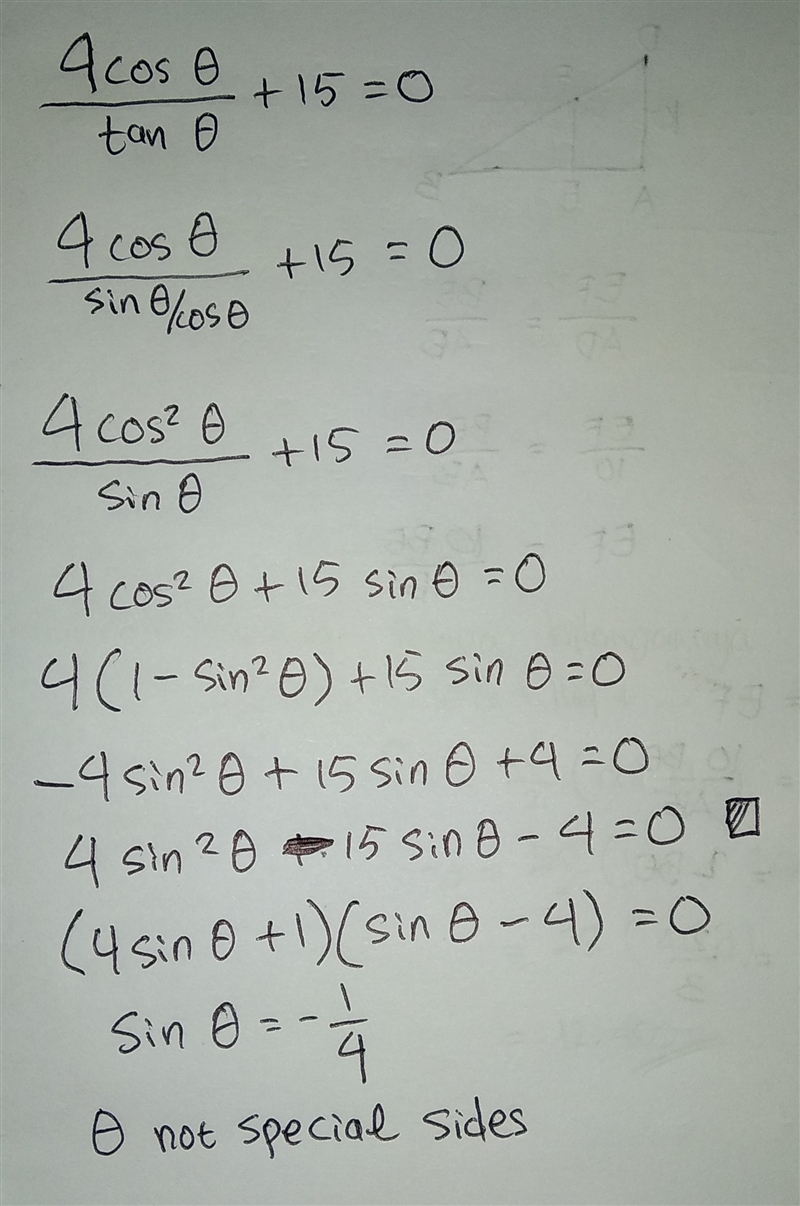 4 cos θ / tan θ + 15 = 0
4 cos θ / sin θ/cos θ + 15 = 0
4 cos² θ / sin θ + 15 = 0
4 cos² θ + 15 sin θ = 0
4(1 - sin² θ) + 15 sin θ = 0
-4 sin² θ + 15 sin θ + 4 = 0
4 sin² θ - 15 sin θ - 4 = 0
(4 sin θ + 1)(sin θ - 4) = 0
sin θ = - 1/4
θ not special sides